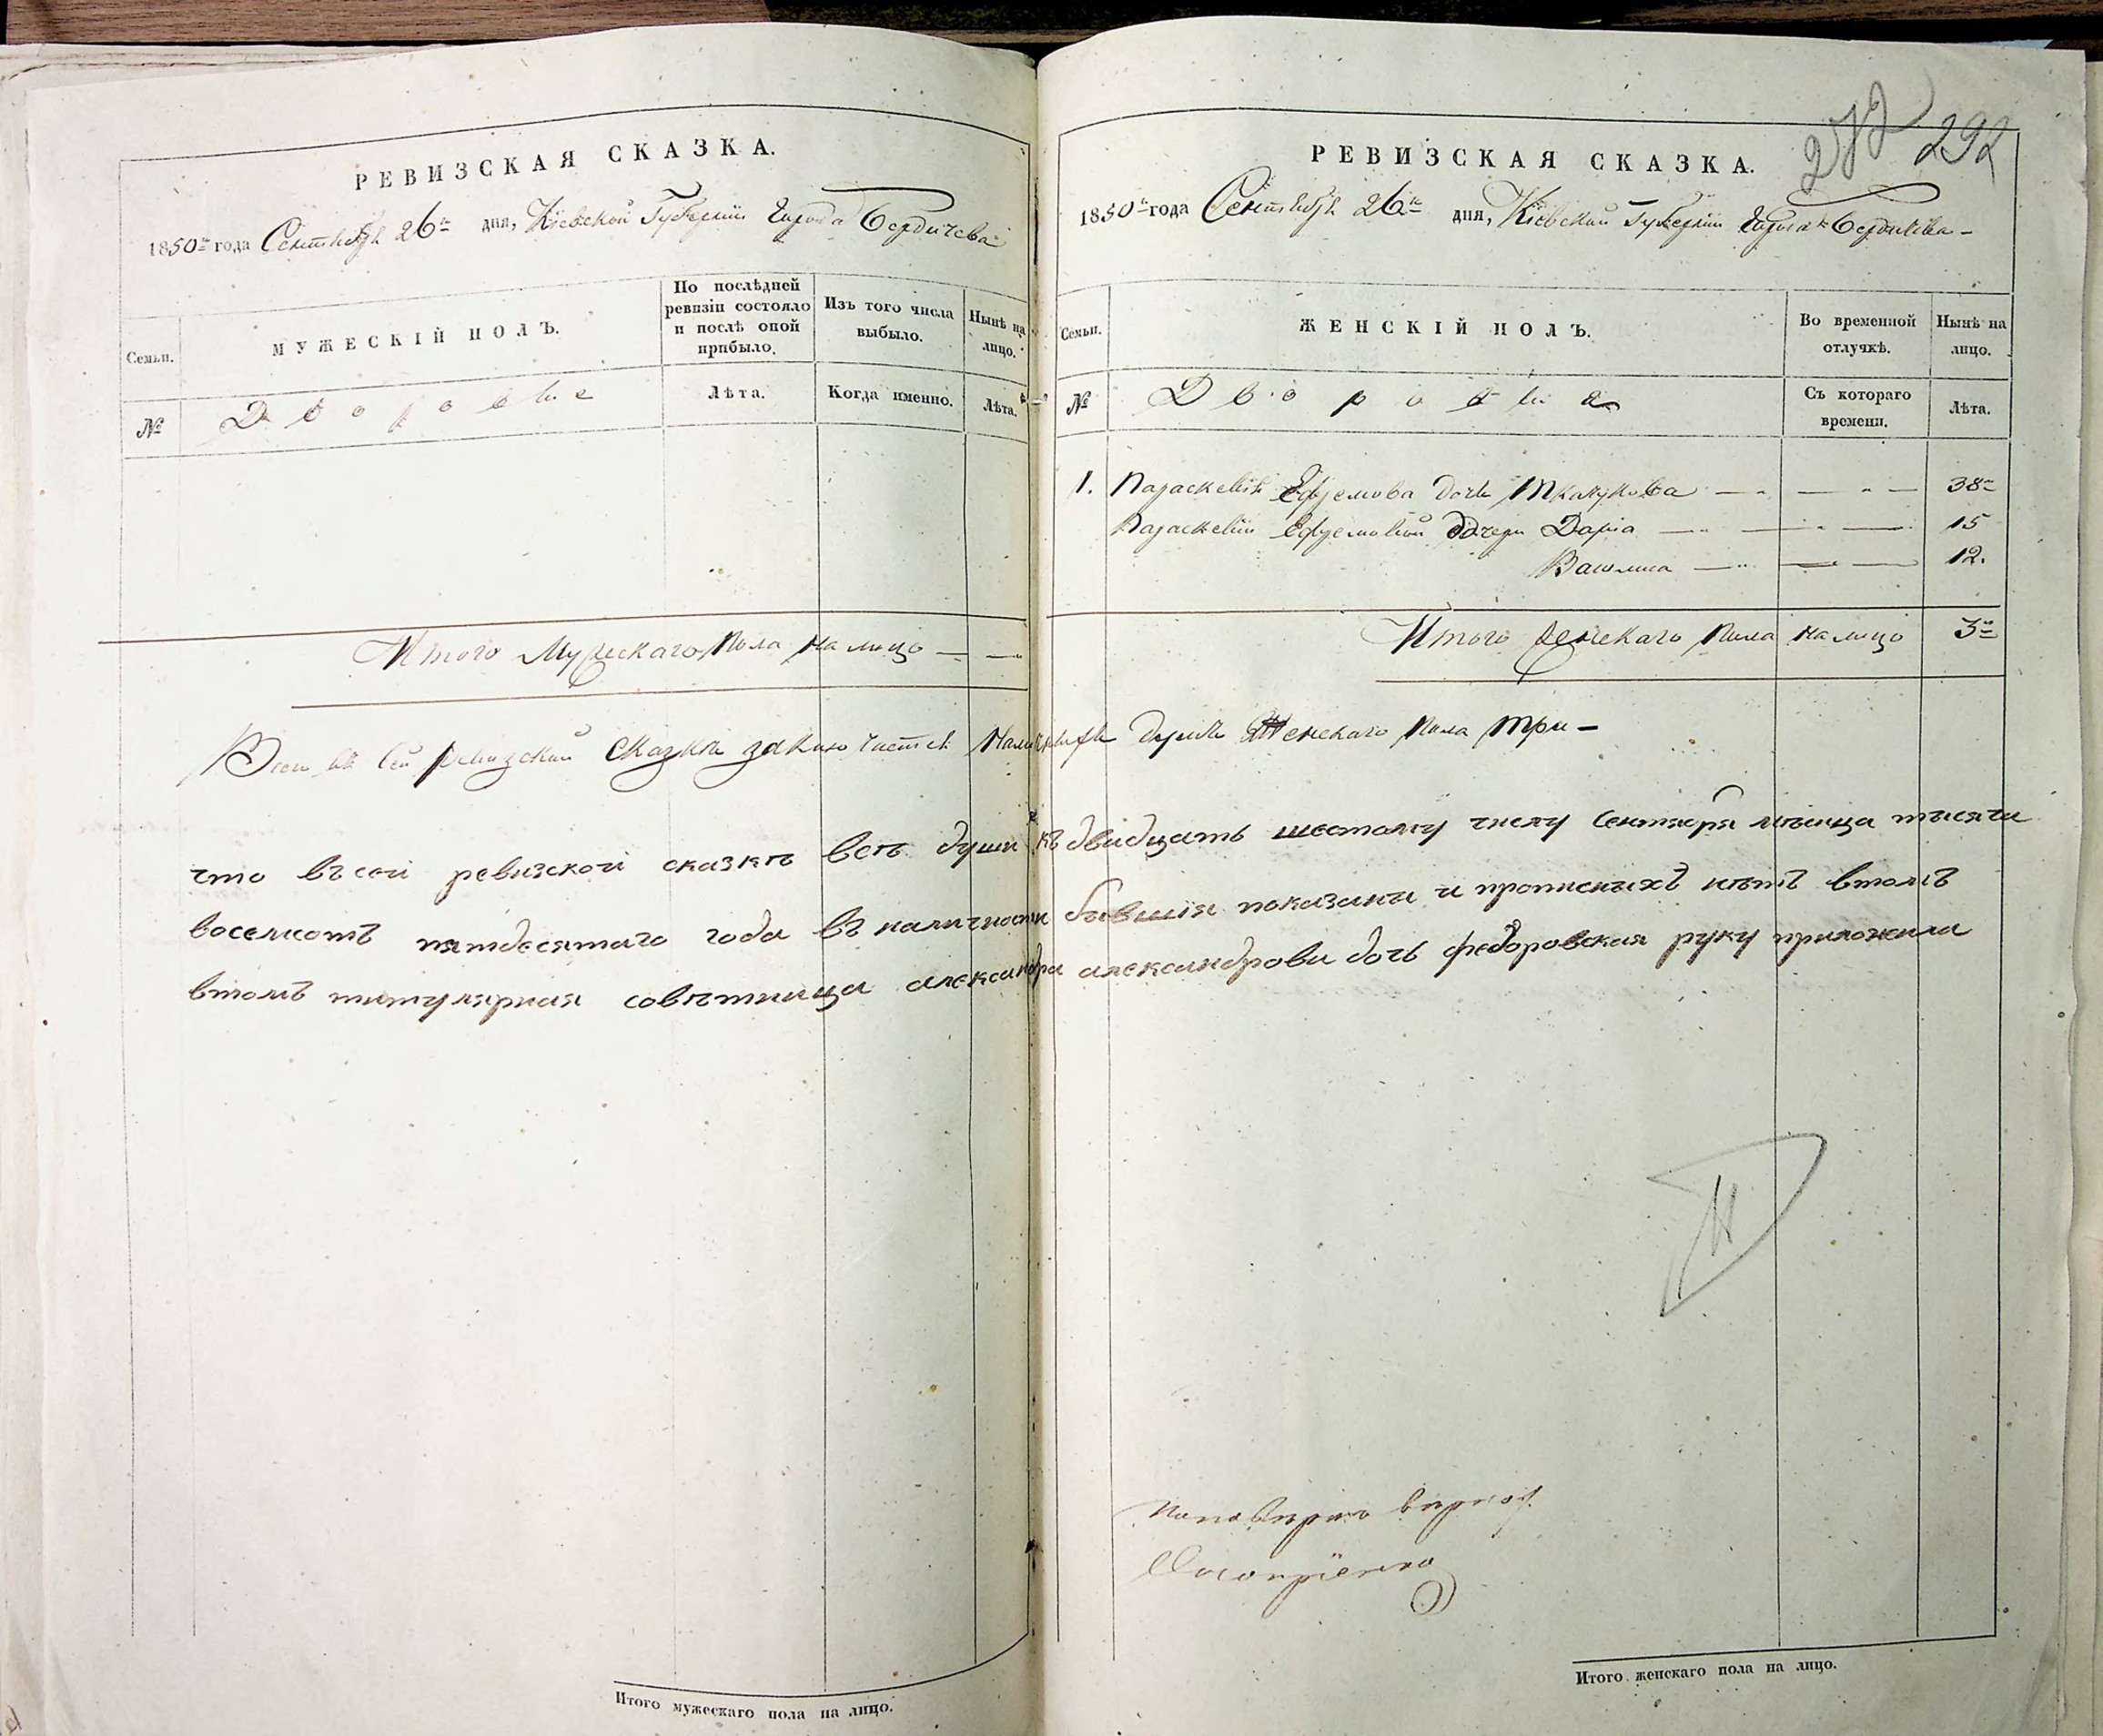 РЕВИЗСКАЯ СКАЗКА.
1850го года Сентября 26го дня, Кіевской Губерніи Города Бердичева
Семьи.
МУЖЕСКІЙ ПОЛЪ.
По послѣдней ревизіи состояло и послѣ оной прибыло.
Изъ того числа выбыло.
Нынѣ на лицо.
№
Дворовые
Лѣта.
Когда именно.
Лѣта.
Итого Мужескаго Пола на лицо — —
Итого мужескаго пола на лицо.
272 292
РЕВИЗСКАЯ СКАЗКА.
1850го года Сентября 26го дня, Кіевской Губерніи Города Бердичева —
Семьи.
ЖЕНСКІЙ ПОЛЪ.
Во временной отлучкѣ.
Нынѣ на лицо.
№
Дворовые
Съ котораго времени.
Лѣта.
1. Параскевія Ефремова дочь — — 38
Параскевіи Ефремовой дочери Дарія — — 15
12.
Итого Женскаго Пола на лицо 3
Всего въ сей ревизской сказкѣ заключается Наличныхъ душъ Женскаго Пола три —
что въ сей ревизской сказкѣ всѣ души къ двадцать шестому числу сентября мѣсяца тысяча
восемсотъ пятдесятаго года въ наличности бывшія показаны и прописныхъ нѣтъ втомъ
втомъ титулярная совѣтница александра александрова дочь федоровская руку приложила
Итого женскаго пола на лицо.